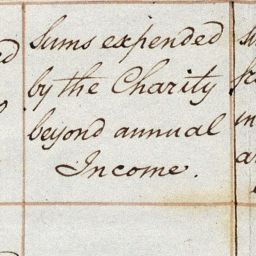 Sums expended
by the Charity
beyond annual
Income.